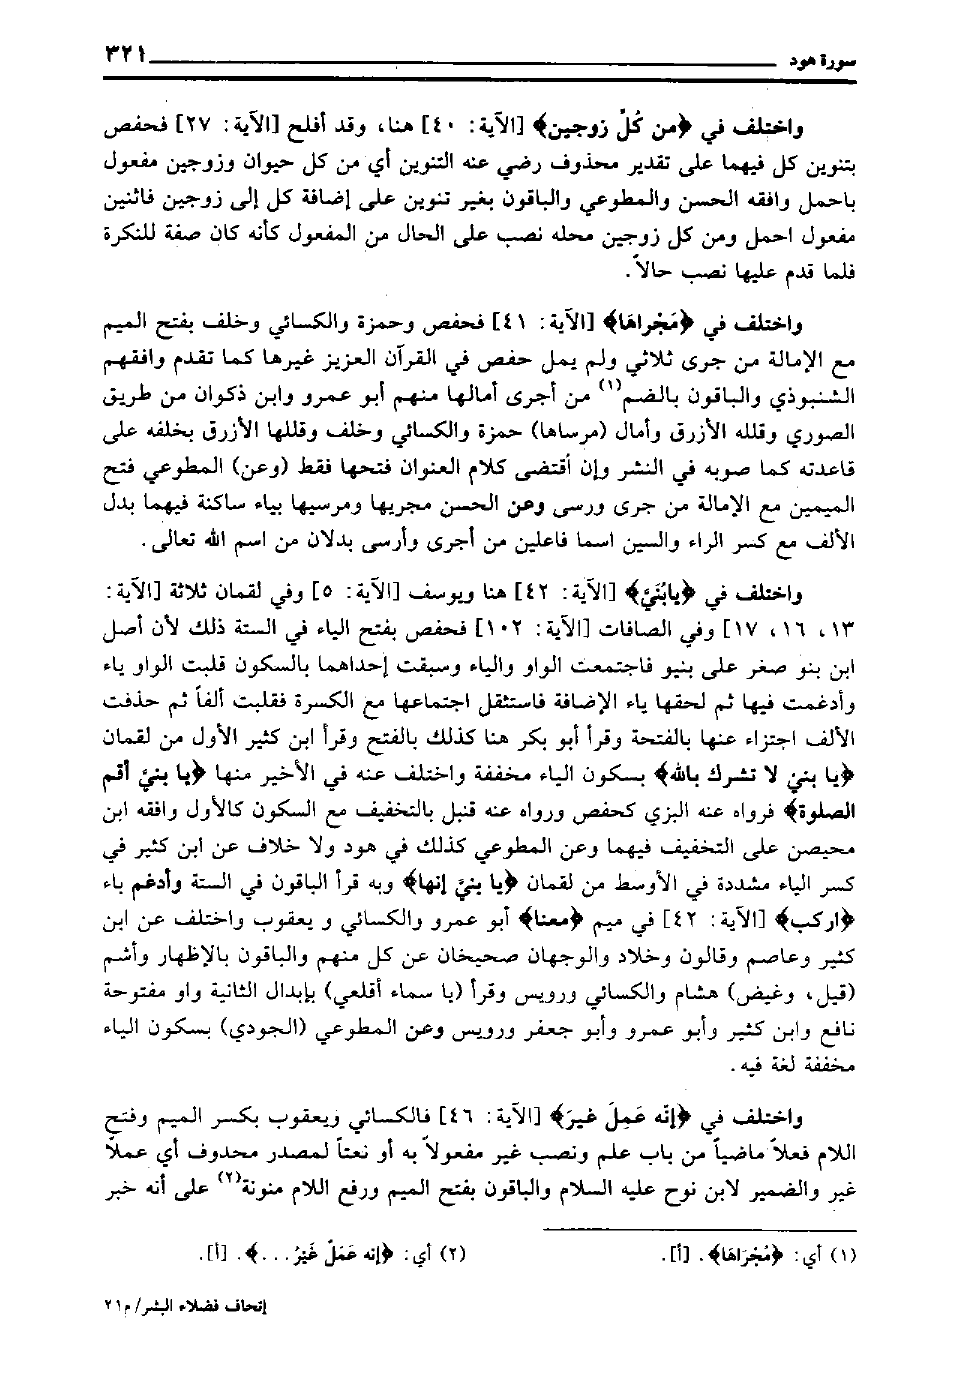 سورة هود ٣٢١
واختلف في ﴿من كُلِّ زوجين﴾ [الآية: ٤٠] هنا، وقد أفلح [الآية: ٢٧] فحفص
بتنوين كل فيهما على تقدير محذوف رضي عنه التنوين أي من كل حيوان وزوجين مفعول
باحمل وافقه الحسن والمطوعي والباقون بغير تنوين على إضافة كل إلى زوجين فاثنين
مفعول احمل ومن كل زوجين محله نصب على الحال من المفعول كأنه كان صفة للنكرة
فلما قدم عليها نصب حالاً.
واختلف في ﴿مَجْراهَا﴾ [الآية: ٤١] فحفص وحمزة والكسائي وخلف بفتح الميم
مع الإمالة من جرى ثلاثي ولم يمل حفص في القرآن العزيز غيرها كما تقدم وافقهم
الشنبوذي والباقون بالضم(١) من أجرى أمالها منهم أبو عمرو وابن ذكوان من طريق
الصوري وقلله الأزرق وأمال (مرساها) حمزة والكسائي وخلف وقللها الأزرق بخلفه على
قاعدته كما صوبه في النشر وإن أقتضى كلام العنوان فتحها فقط (وعن) المطوعي فتح
الميمين مع الإمالة من جرى ورسى وعن الحسن مجريها ومرسيها بياء ساكنة فيهما بدل
الألف مع كسر الراء والسين اسما فاعلين من أجرى وأرسى بدلان من اسم الله تعالى.
واختلف في ﴿يابُنَيَّ﴾ [الآية: ٤٢] هنا ويوسف [الآية: ٥] وفي لقمان ثلاثة [الآية:
١٣، ١٦، ١٧] وفي الصافات [الآية: ١٠٢] فحفص بفتح الياء في الستة ذلك لأن أصل
ابن بنو صغر على بنيو فاجتمعت الواو والياء وسبقت إحداهما بالسكون قلبت الواو ياء
وأدغمت فيها ثم لحقها ياء الإضافة فاستثقل اجتماعها مع الكسرة فقلبت ألفاً ثم حذفت
الألف اجتزاء عنها بالفتحة وقرأ أبو بكر هنا كذلك بالفتح وقرأ ابن كثير الأول من لقمان
﴿يا بنيْ لا تشرك بالله﴾ بسكون الياء مخففة واختلف عنه في الأخير منها ﴿يا بنيْ أقم
الصلوة﴾ فرواه عنه البزي كحفص ورواه عنه قنبل بالتخفيف مع السكون كالأول وافقه ابن
محيصن على التخفيف فيهما وعن المطوعي كذلك في هود ولا خلاف عن ابن كثير في
كسر الياء مشددة في الأوسط من لقمان ﴿يا بنيِّ إنها﴾ وبه قرأ الباقون في الستة وأدغم باء
﴿اركب﴾ [الآية: ٤٢] في ميم ﴿معنا﴾ أبو عمرو والكسائي و يعقوب واختلف عن ابن
كثير وعاصم وقالون وخلاد والوجهان صحيحان عن كل منهم والباقون بالإظهار وأشم
(قيل، وغيض) هشام والكسائي ورويس وقرأ (يا سماء أقلعي) بإبدال الثانية واو مفتوحة
نافع وابن كثير وأبو عمرو وأبو جعفر ورويس وعن المطوعي (الجودي) بسكون الياء
مخففة لغة فيه.
واختلف في ﴿إنَّه عَمِلَ غيرَ﴾ [الآية: ٤٦] فالكسائي ويعقوب بكسر الميم وفتح
اللام فعلاً ماضياً من باب علم ونصب غير مفعولاً به أو نعتاً لمصدر محذوف أي عملاً
غير والضمير لابن نوح عليه السلام والباقون بفتح الميم ورفع اللام منونة(٢) على أنه خبر
(١) أي: ﴿مُجْرَاهَا﴾. [أ]. (٢) أي: ﴿إنه عَمَلٌ غَيْرُ...﴾. [أ].
إتحاف فضلاء البشر/ م٢١